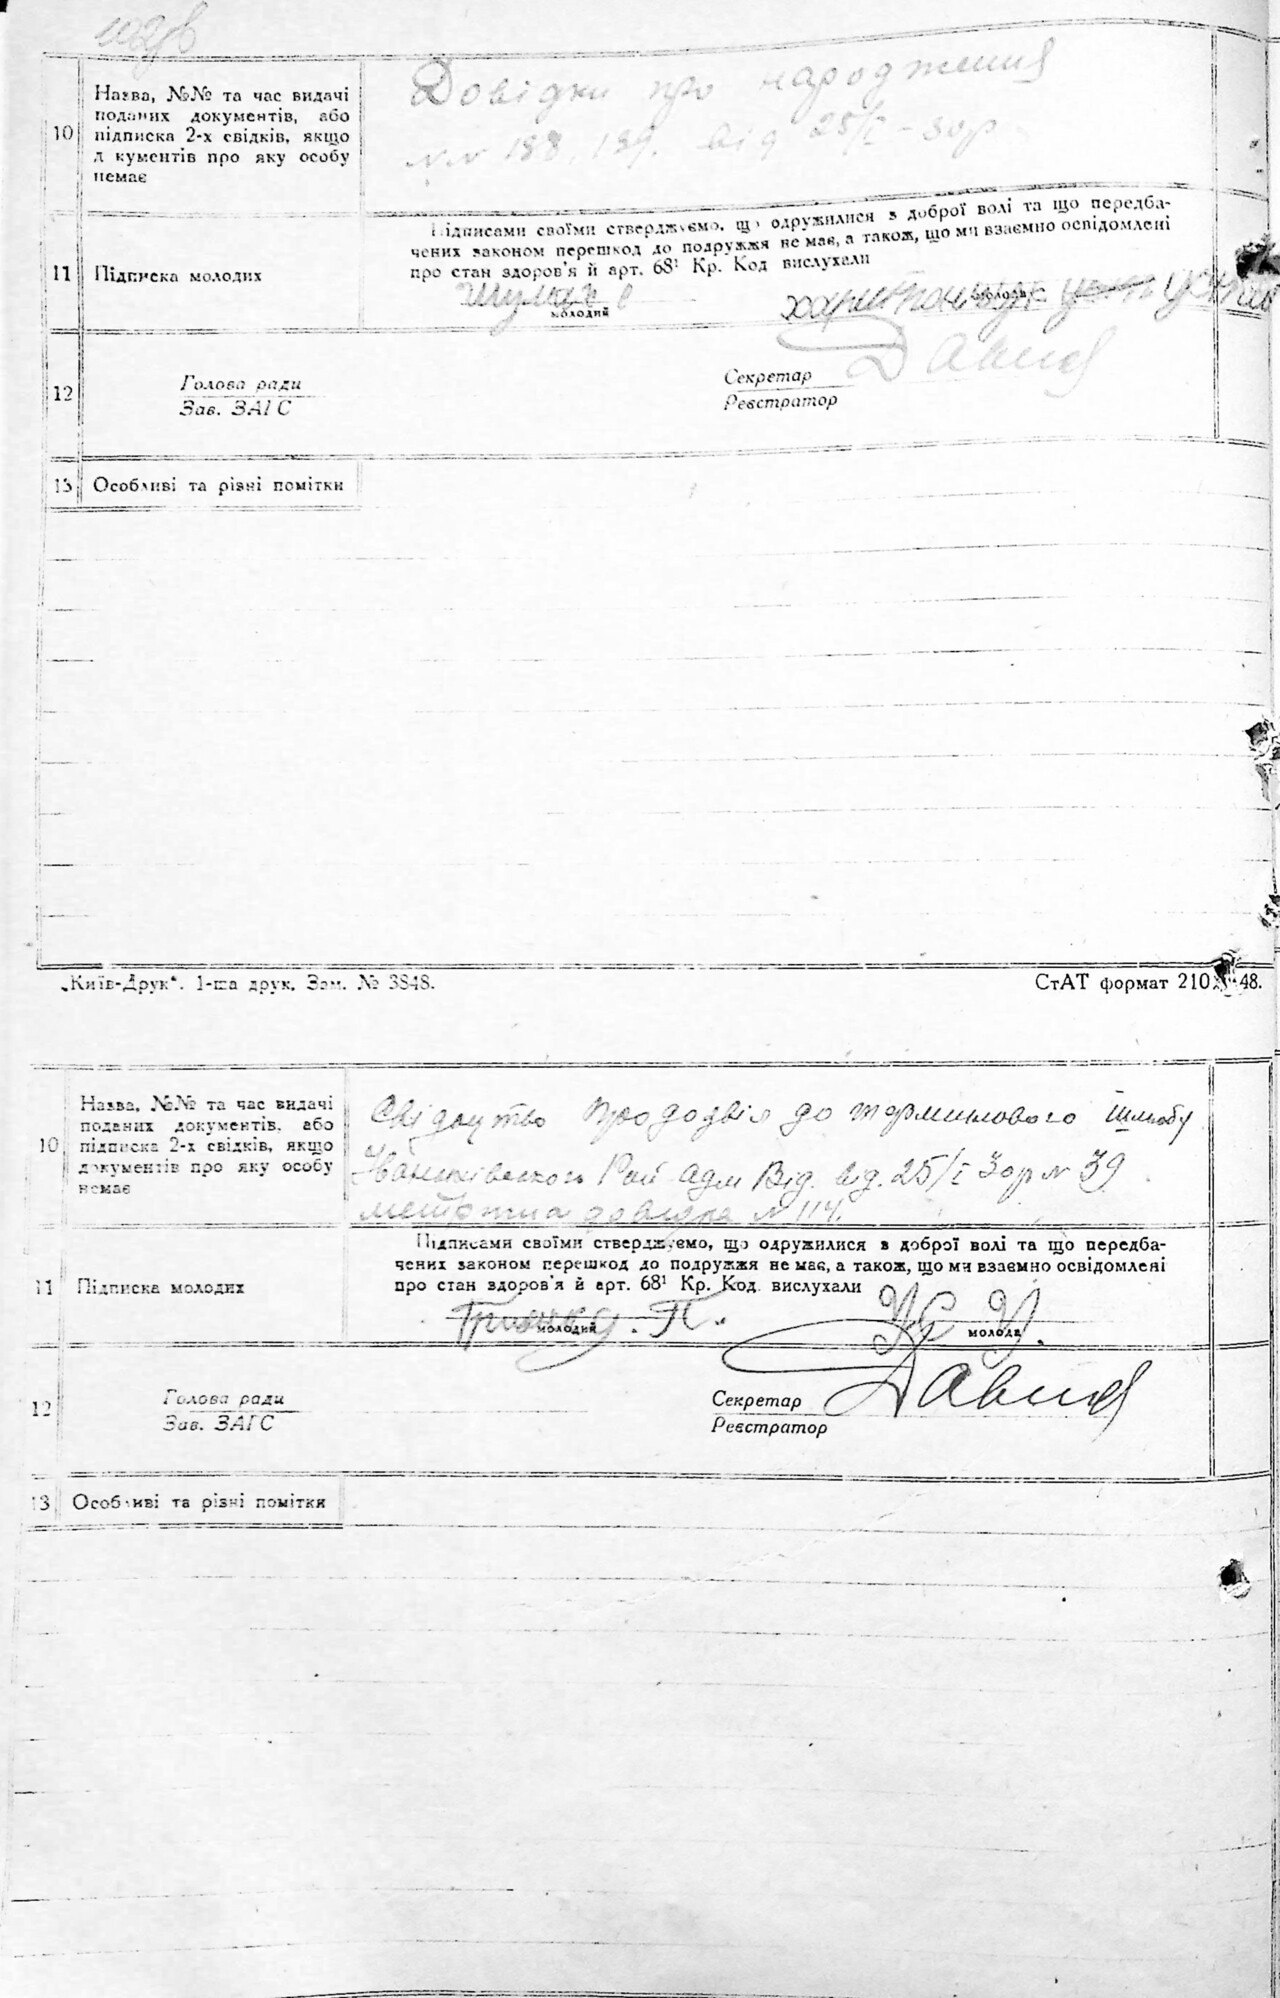 10
Назва, №№ та час видачі
поданих документів, або
підписка 2-х свідків, якщо
д кументів про яку особу
немає
Довідки про народження
N N 188, 189. від 25/I - 30 р
11
Підписка молодих
Підписами своїми стверджуємо, що одружилися з доброї волі та що передба-
чених законом перешкод до подружжя не має, а також, що ми взаємно освідомлені
про стан здоров'я й арт. 68¹ Кр. Код вислухали
молодий
молода
12
Голова ради
Зав. ЗАГС
Секретар
Реєстратор
13
Особливі та різні помітки
„Київ-Друк“. 1-ша друк. Зам. № 3848.
СтАТ формат 210 48.
10
Назва, №№ та час видачі
поданих документів, або
підписка 2-х свідків, якщо
документів про яку особу
немає
Свідоцтво до шлюбу
Рай адм Від. від. 25/I 30 р N 39
довідка N 114.
11
Підписка молодих
Підписами своїми стверджуємо, що одружилися з доброї волі та що передба-
чених законом перешкод до подружжя не має, а також, що ми взаємно освідомлені
про стан здоров'я й арт. 68¹ Кр. Код вислухали
П.
молодий
молода
12
Голова ради
Зав. ЗАГС
Секретар
Реєстратор
13
Особливі та різні помітки